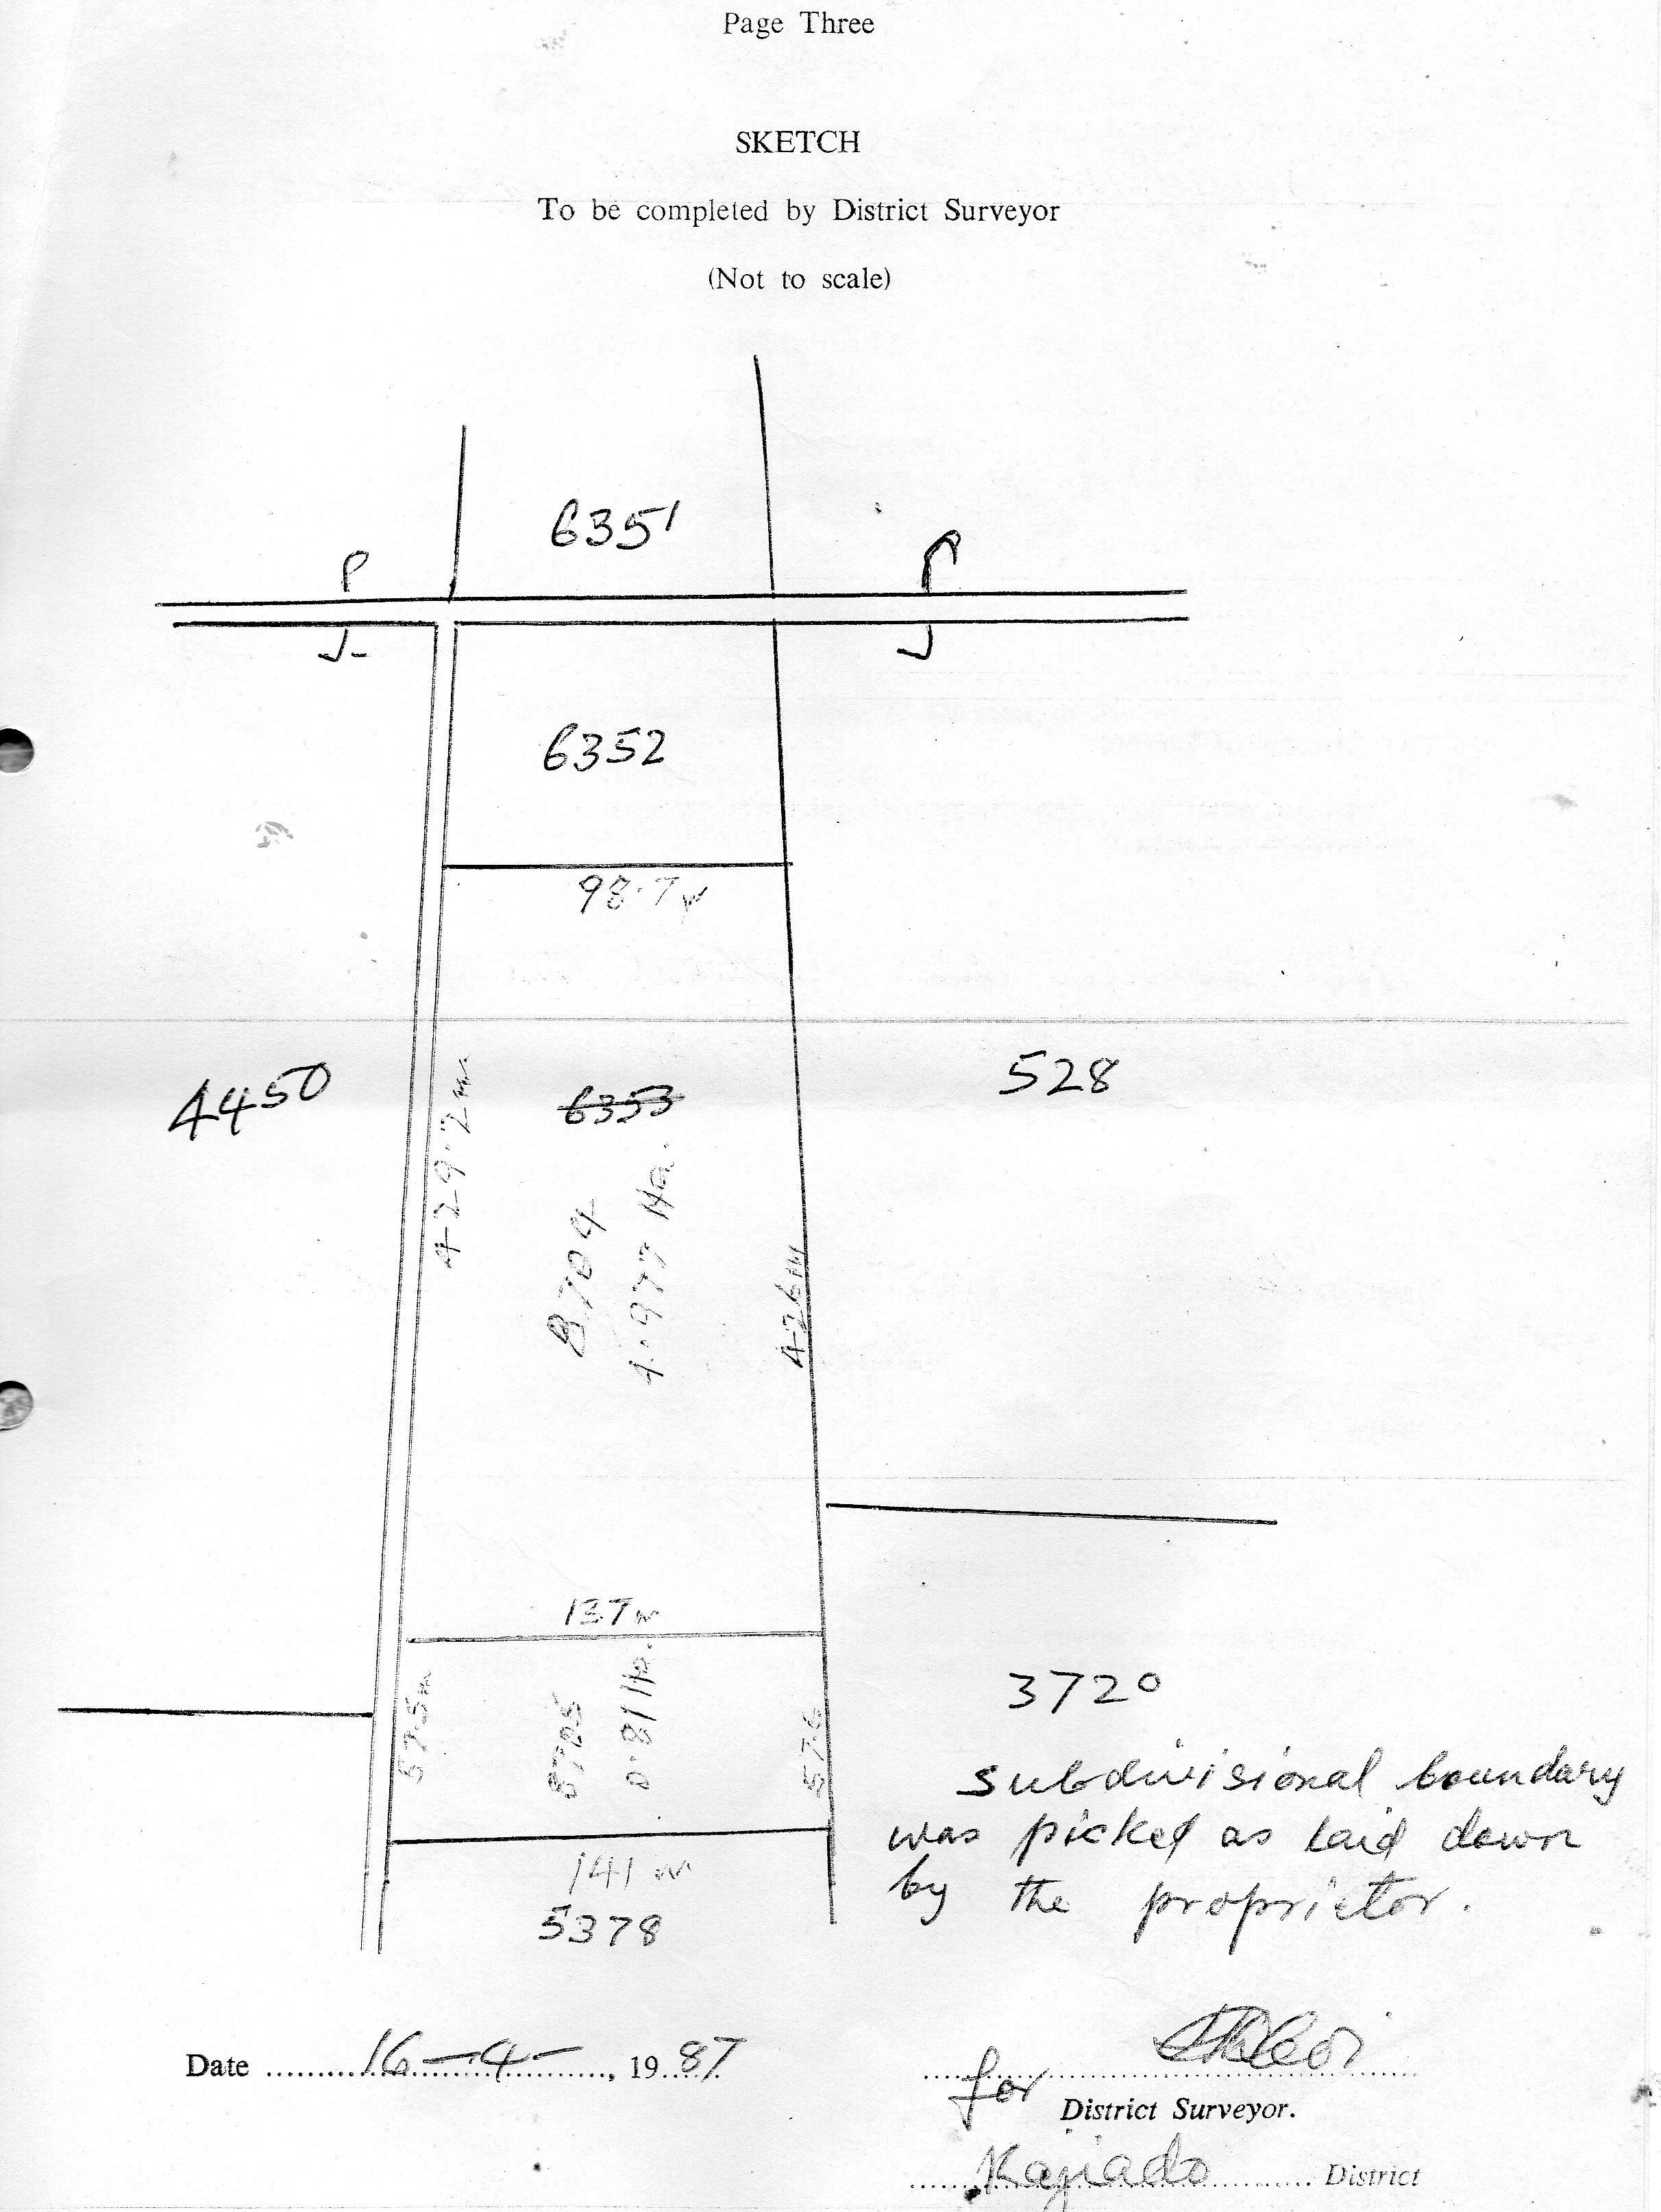 Page Three
SKETCH
To be completed by District Surveyor
(Not to scale)
6351
P
P
J
J
6352
98.7 m
4450
429.2 m
6353
528
8704
4.977 Ha.
426m
137 m
57.5m
8705
0.81 Ha.
57.6
3720
subdivisional boundary
was picked as laid down
by the proprietor.
141 m
5378
Date 16-4-, 1987
for
District Surveyor.
Kajiado District